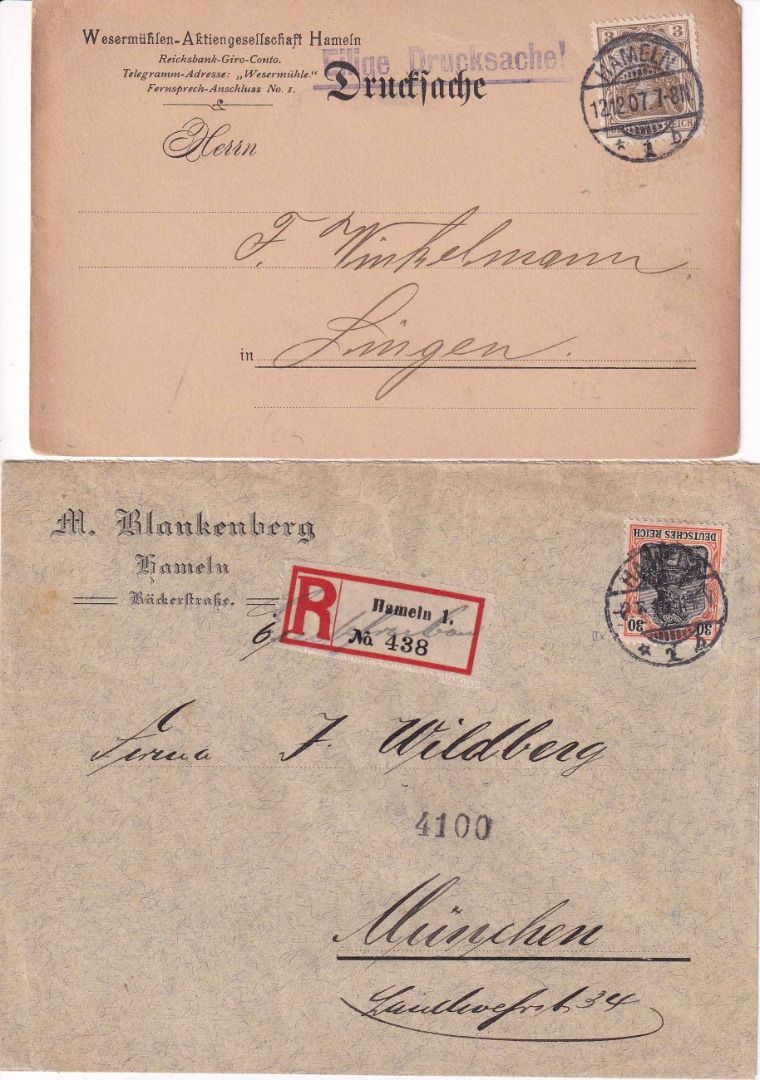 Wesermühlen-Aktiengesellschaft Hameln
Reichsbank-Giro-Conto.
Telegramm-Adresse: „Wesermühle.“
Fernsprech-Anschluss No. 1.
Eilige Drucksache!
Drucksache
3 3
HAMELN
12.12.07. 7-8N
* 1 b
REICH
Herrn
F. Winkelmann
in Lingen.
M. Blankenberg
Hameln
Bäckerstraße.
R
Hameln 1.
No. 438
DEUTSCHES REICH
30 30
* 1 b
Firma J. Wildberg
4100
München
Landwehrstr. 34